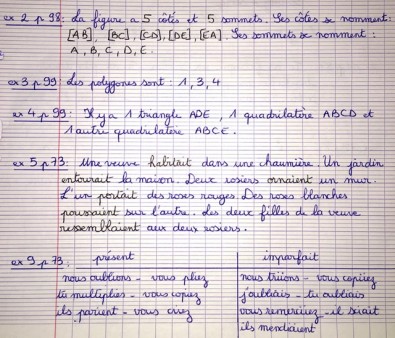 ex 2 p 98: La figure a 5 côtés et 5 sommets. Ses côtés se nomment:
[AB], [BC], [CD], [DE], [EA]. Ses sommets se nomment :
A, B, C, D, E.
ex 3 p 99: Les polygones sont : 1, 3, 4
ex 4 p 99: Il y a 1 triangle ADE, 1 quadrilatère ABCD et
1 autre quadrilatère ABCE.
ex 5 p 73: Une veuve habitait dans une chaumière. Un jardin
entourait la maison. Deux rosiers ornaient un mur.
L'un portait des roses rouges. Des roses blanches
poussaient sur l'autre. Les deux filles de la veuve
ressemblaient aux deux rosiers.
ex 9 p 73: présent imparfait
nous oublions - vous pliez nous triions - vous copiiez
tu multiplies - vous copiez j'oubliais - tu oubliais
ils parient - vous criez vous remerciiez - il sciait
ils mendiaient